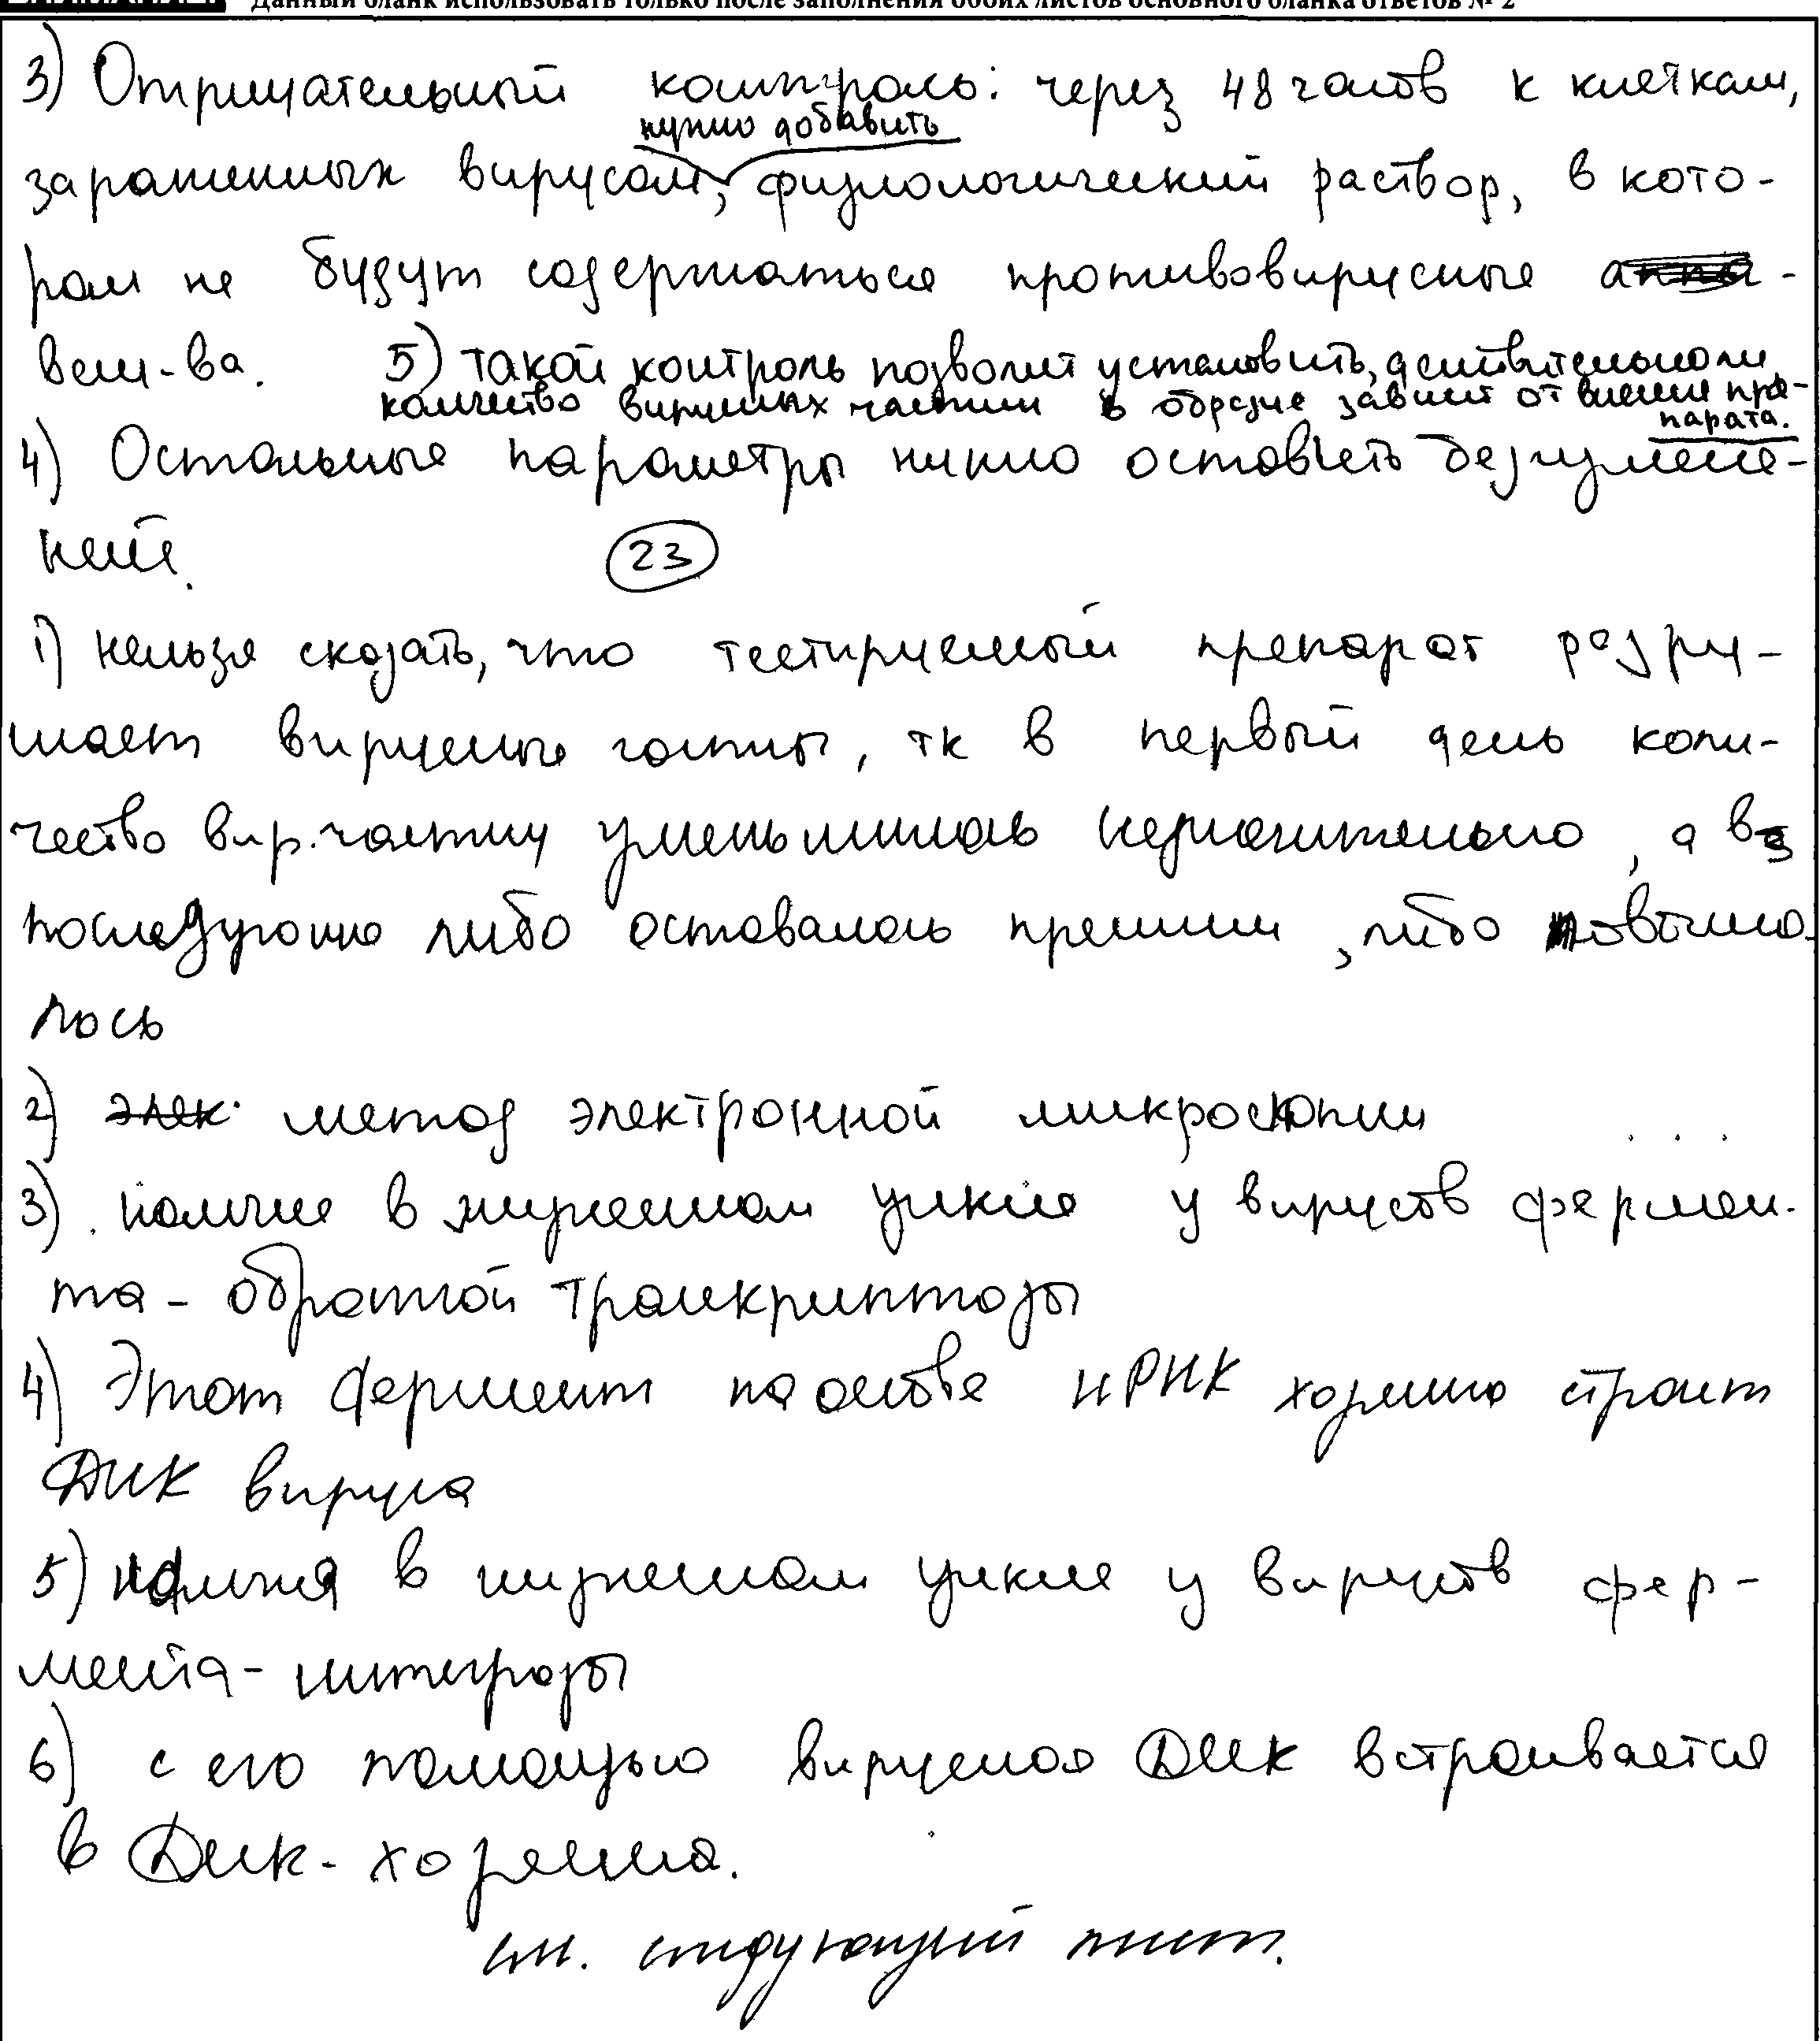 Данный бланк использовать только после заполнения обоих листов основного бланка ответов № 2
3) Отрицательный контроль: через 48 часов к клеткам,
нужно добавить
зараженных вирусом, физиологический раствор, в кото-
ром не будут содержаться противовирусные
вещ-ва. 5) такой контроль позволит установить, действительно ли
количество вирусных частиц в образце зависит от внесения пре-
парата.
4) Остальные параметры нужно оставить без измене-
ний.
23
1) нельзя сказать, что тестируемый препарат разру-
шает вирусные частицы, тк в первый день коли-
чество вир. частиц уменьшилось незначительно, а в
последующие либо оставалось прежним, либо повыша-
лось
2) элек. метод электронной микроскопии
3) наличие в жизненном цикле у вирусов фермен-
та - обратной транскриптазы
4) Этот фермент на остве иРНК хозяина строит
ДНК вируса
5) наличия в жизненном цикле у вирусов фер-
мента - интегразы
6) с его помощью вирусная ДНК встраивается
в ДНК - хозяина.
см. следующий лист.